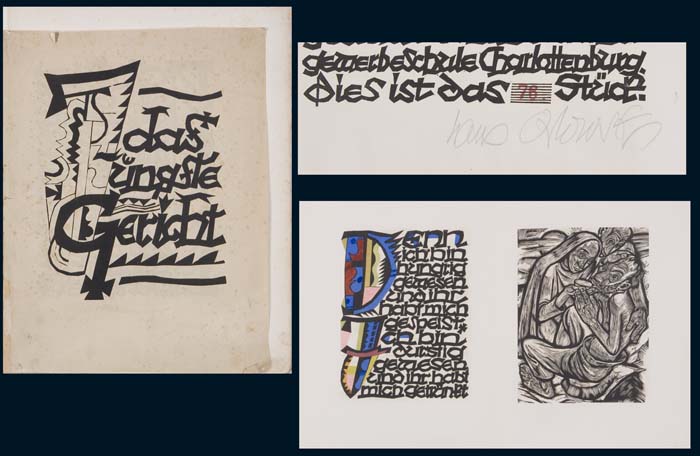 das
Jüngste
Gericht
gewerbeschule Charlottenburg.
Dies ist das 78 Stück.
Hans Orlowski
Denn
ich bin
hungrig
gewesen
und ihr
habt mich
gespeist:
Ich bin
durstig
gewesen
und ihr habt
mich getränkt